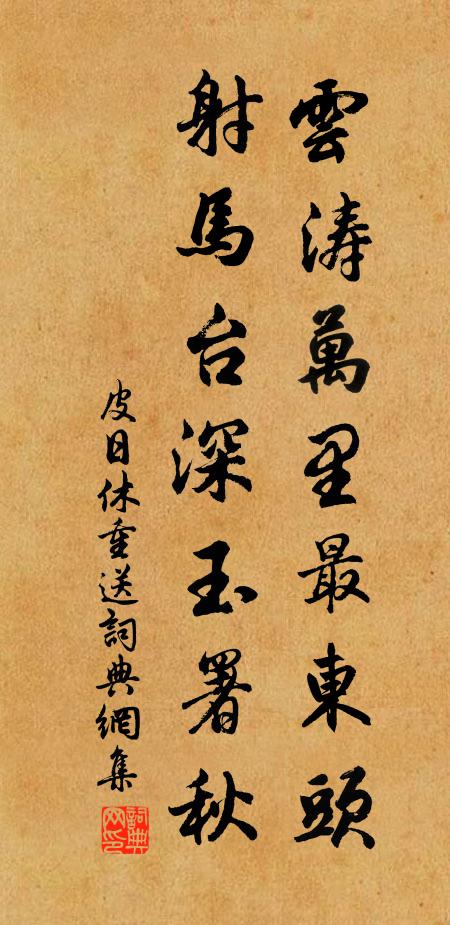 雲濤萬里最東頭
射馬台深玉署秋
皮日休重送詞典網集
詞典網印